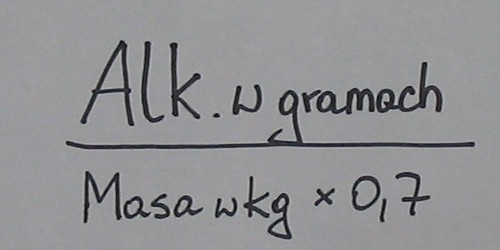 Alk. w gramach
Masa w kg × 0,7